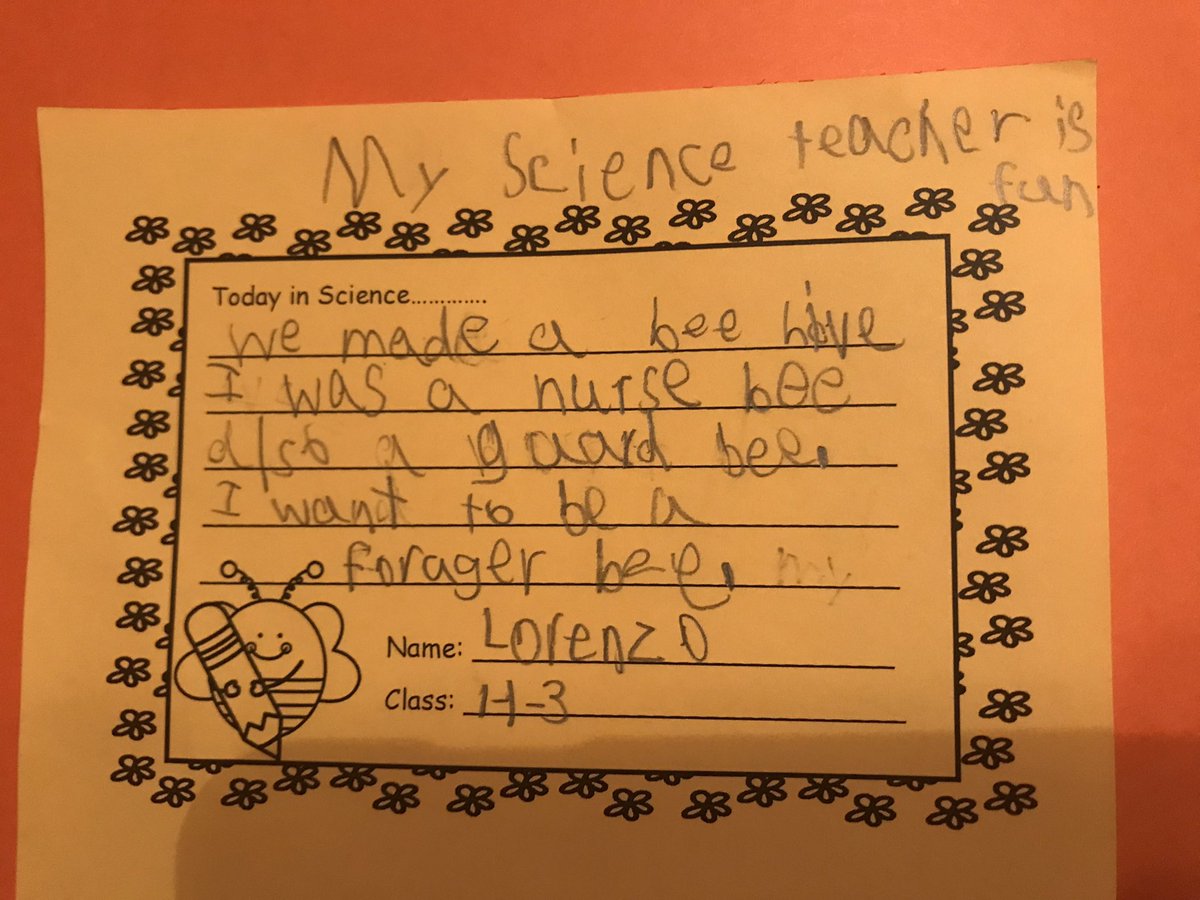 My Science teacher is
fun
Today in Science.............
We made a bee hive
I was a nurse bee
also a gaard bee.
I want to be a
forager bee. my
Name: Lorenzo
Class: 1-1-3